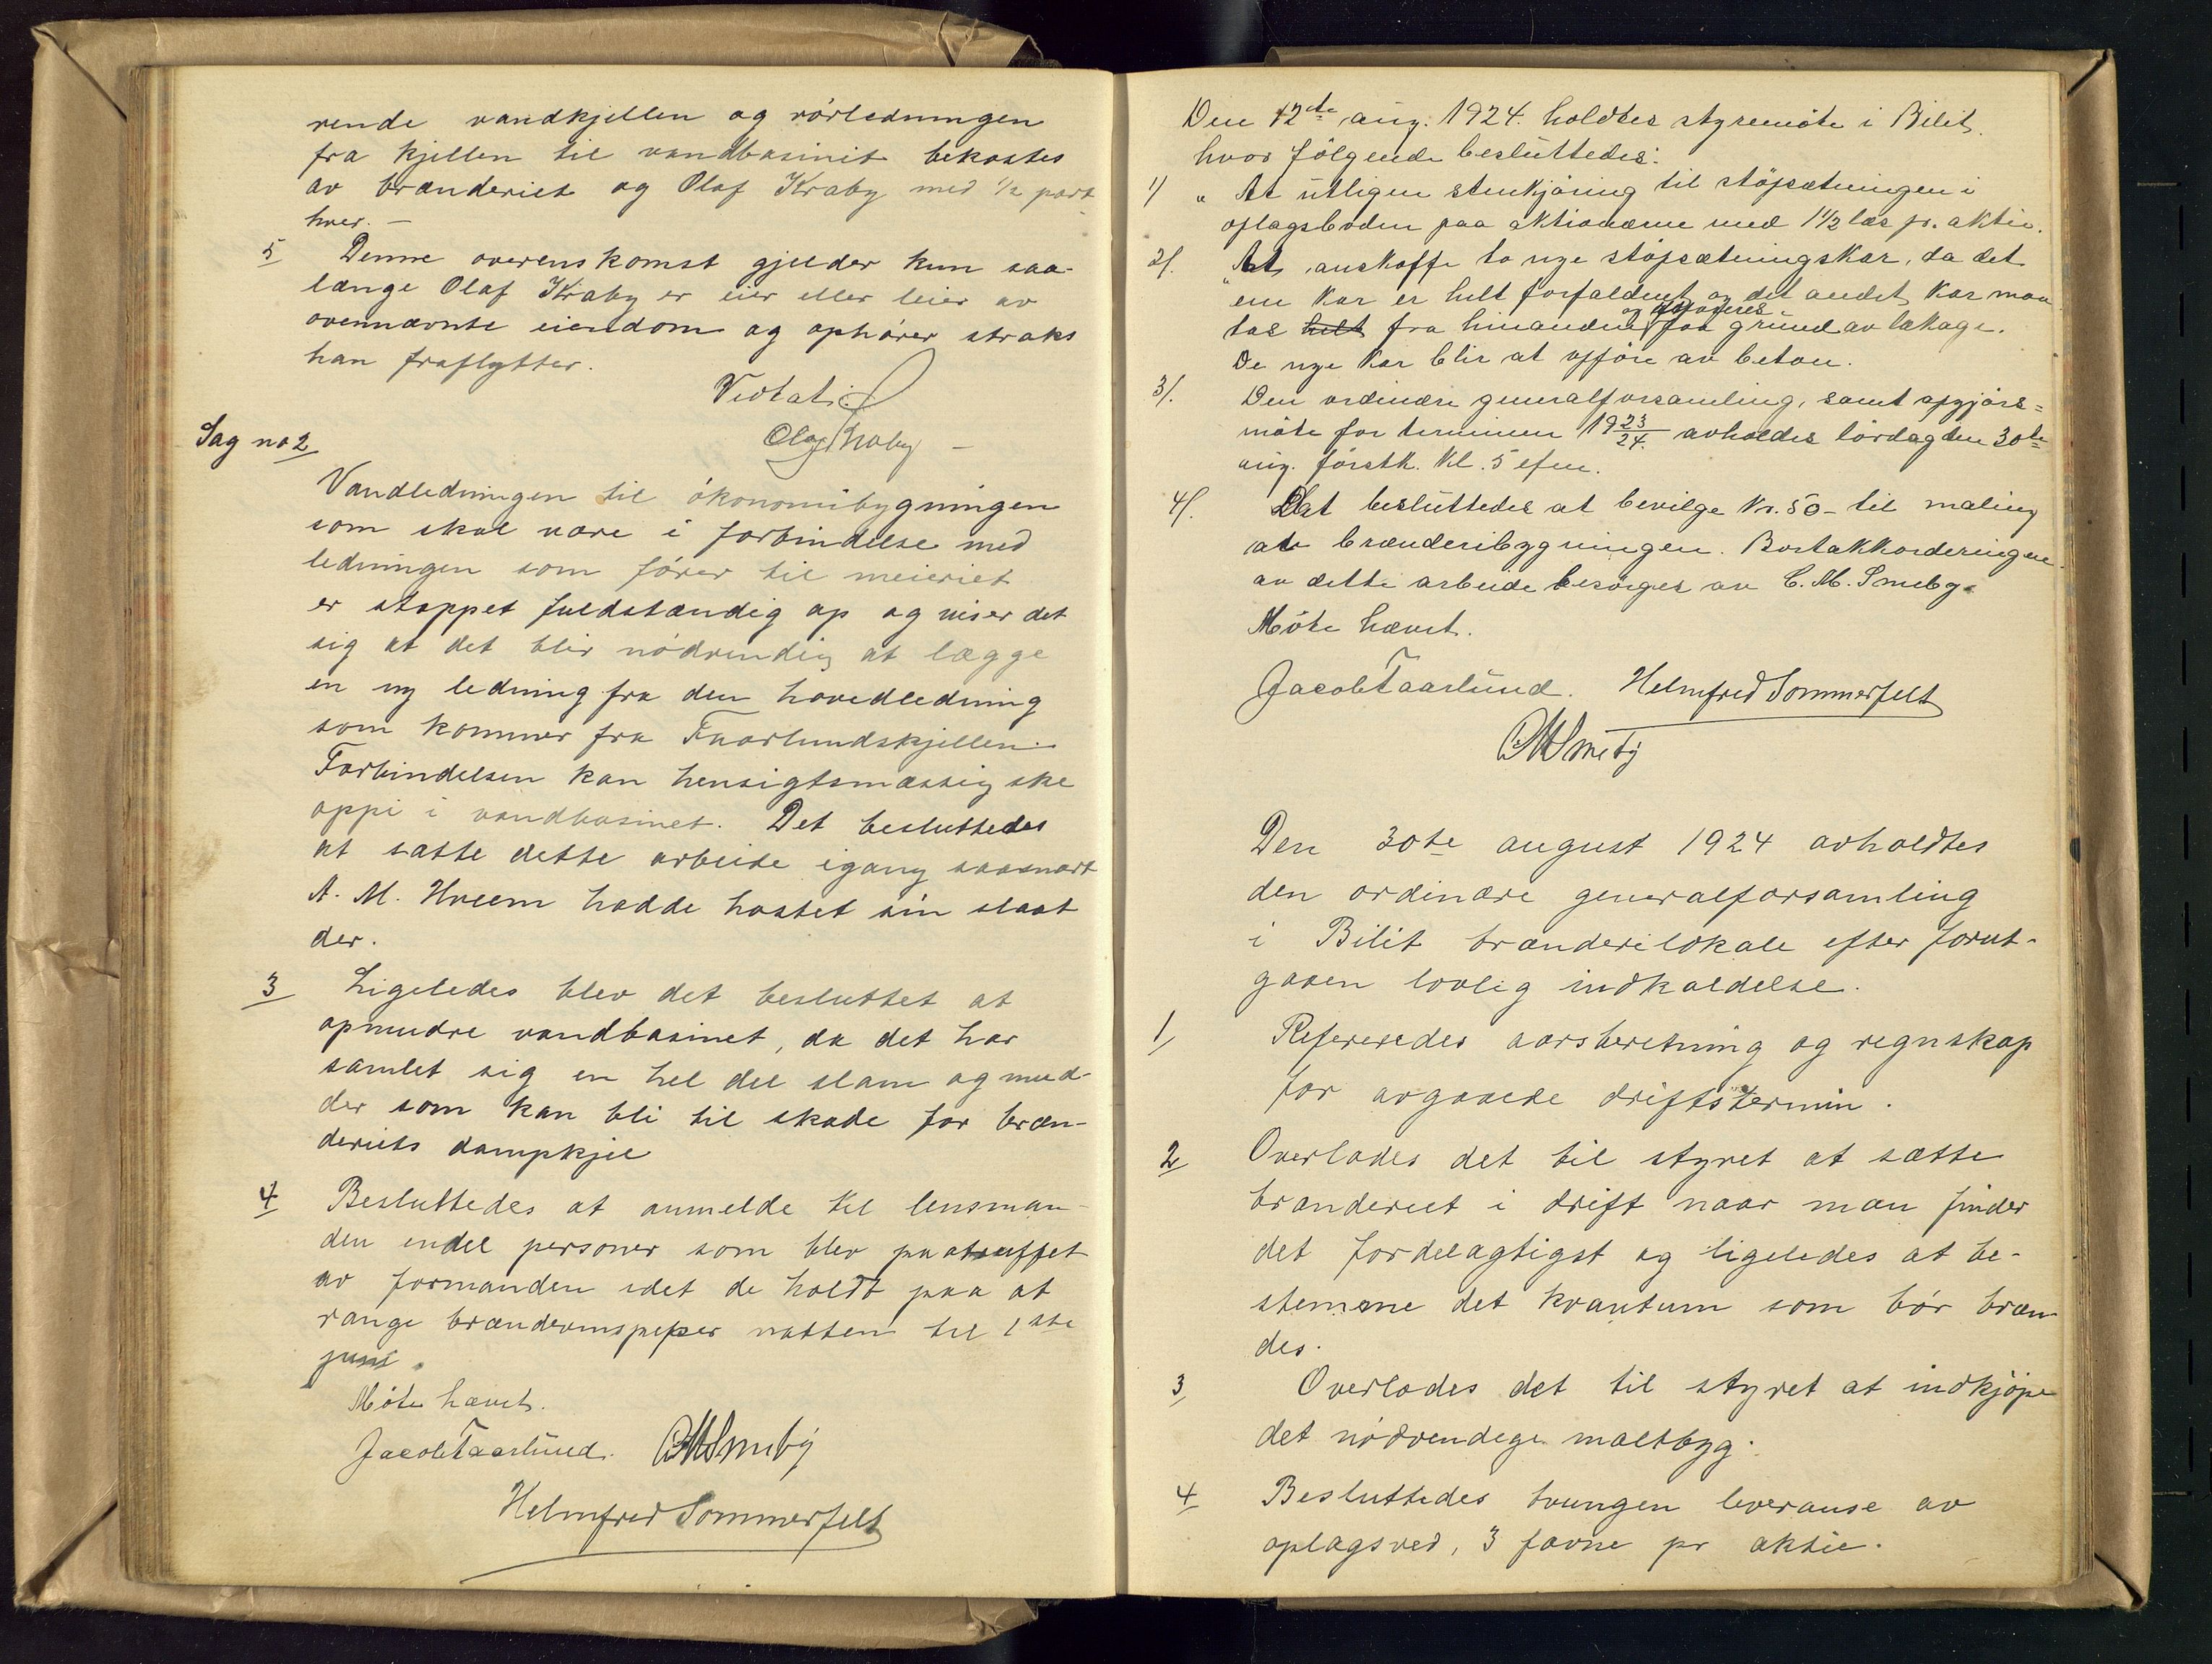 rende vandkjellen og rörledningen
fra kjellen til vandbasinit bekostes
av brænderiet og Olaf Kraby med 1/2 part
hver. —
5 Denne overenskomst gjelder kun saa-
længe Olaf Kraby er eier eller leier av
ovennævnte eiendom og ophörer straks
han fraflytter.
Vedtat:
Olaf Kraby —
Sag no 2
Vandledningen til ökonomibygningen
som skal være i forbindelse med
ledningen som förer til meieriet
er stoppet fuldstændig op og viser det
sig at det blir nödvendig at lægge
en ny ledning fra den hovedledning
som kommer fra Faarlundskjellen.
Forbindelsen kan hensigtsmæssig ske
oppi i vandbasinet. Det besluttedes
at sætte dette arbeide igang saasnart
A. M. Hveem hadde høstet sin slaat
der.
3 Ligeledes blev det besluttet at
opmudre vandbasinet, da det har
samlet sig en hel del slam og mud-
der som kan bli til skade for bræn-
deriets dampkjel
4 Besluttedes at anmelde til lensman-
den endel personer som blev paatruffet
av formanden idet de holdt paa at
range brænderiets natten til 1ste
juni.
Möte hævet.
Jacob Taarlund. C M Smeby
Helmfred Sommerfelt
Den 12te aug. 1924. holdtes styremöte i Bilit.
hvor fölgende besluttedes:
1) " At utligne stenkjöring til stöpsætningen i
oplagsboden paa aktionærene med 1 1/2 læs pr. aktie.
2). " At anskaffe to nye stöpsætningskar, da det
ene kar er helt forfaldent og det andet kar maa
tas helt fra hinanden og paa grund av lækage.
De nye kar blir at opföre av beton.
3). Den ordinære generalforsamling, samt opgjörs=
möte for terminen 19 23/24. avholdes lördag den 30te
aug. förstk. kl. 5 efm.
4). Det besluttedes at bevilge kr. 50- til maling
av brænderibygningen. Bortakkorderingen
av dette arbeide besörges av C. M. Smeby.
Möte hævet.
Jacob Taarlund. Helmfred Sommerfelt
C M Smeby
Den 30te august 1924 avholdtes
den ordinære generalforsamling
i Bilit brænderilokale efter forut-
gaaen lovlig indkaldelse.
1 Refereredes aarsberetning og regnskap
for avgaaede driftstermin.
2 Overlodes det til styret at sætte
brænderiet i drift naar man finder
det fordelagtigst og ligeledes at be-
stemme det kvantum som bör bræn-
des.
3 Overlodes det til styret at indkjöpe
det nödvendige maltbyg.
4 Besluttedes tvungen leveranse av
oplagsved, 3 favne pr aktie.